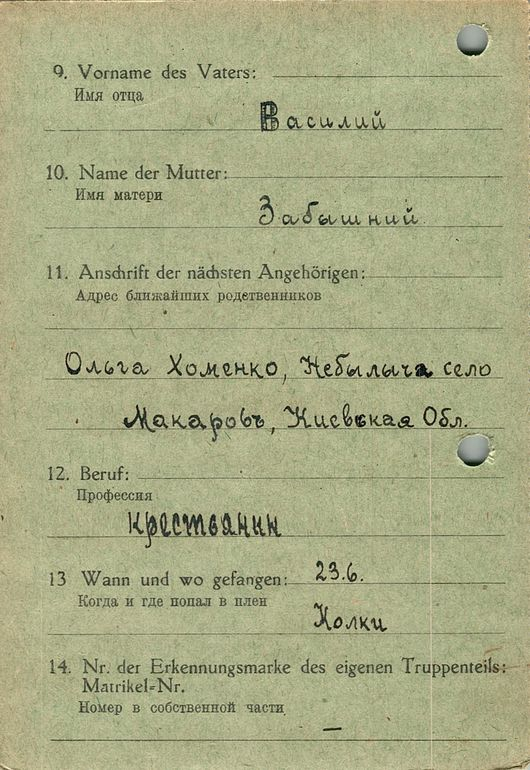 9. Vorname des Vaters:
Имя отца
Василий
10. Name der Mutter:
Имя матери
Забышний
11. Anschrift der nächsten Angehörigen:
Адрес ближайших родственников
Ольга Хоменко, Небылыча село
Макаровъ, Киевская Обл.
12. Beruf:
Профессия
Крестьянин
13 Wann und wo gefangen: 23.6.
Когда и где попал в плен
Колки
14. Nr. der Erkennungsmarke des eigenen Truppenteils:
Matrikel-Nr.
Номер в собственной части
—